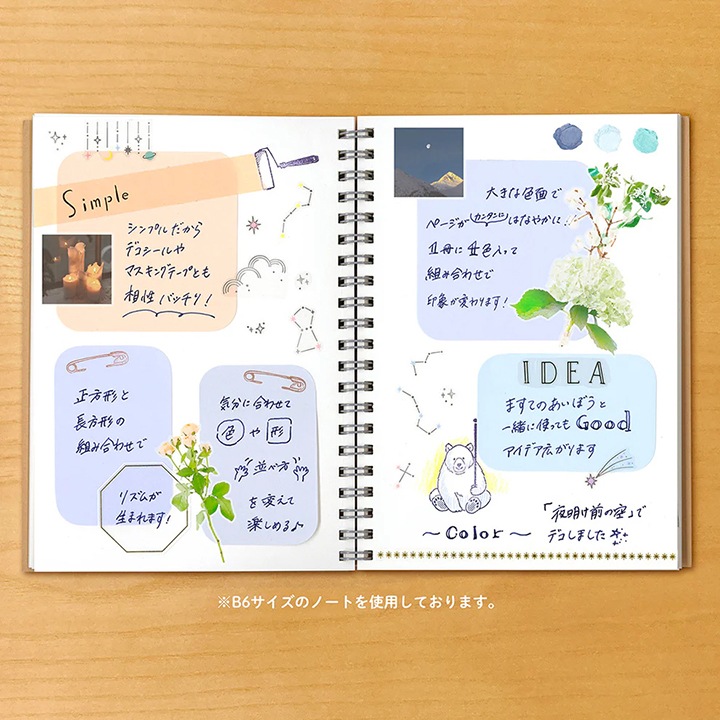 Simple
シンプルだから
デコシールや
マスキングテープとも
相性バッチリ!
正方形と
長方形の
組み合わせで
リズムが
生まれます!
気分に合わせて
色や形
並べ方
を変えて
楽しめる♪
大きな色面で
ページがカンタンにはなやかに!
1冊に4色入って
組み合わせで
印象が変わります!
IDEA
ますてのあいぼうと
一緒に使ってもGood
アイデア広がります
~Color~
「夜明け前の空」で
デコしました
※B6サイズのノートを使用しております。